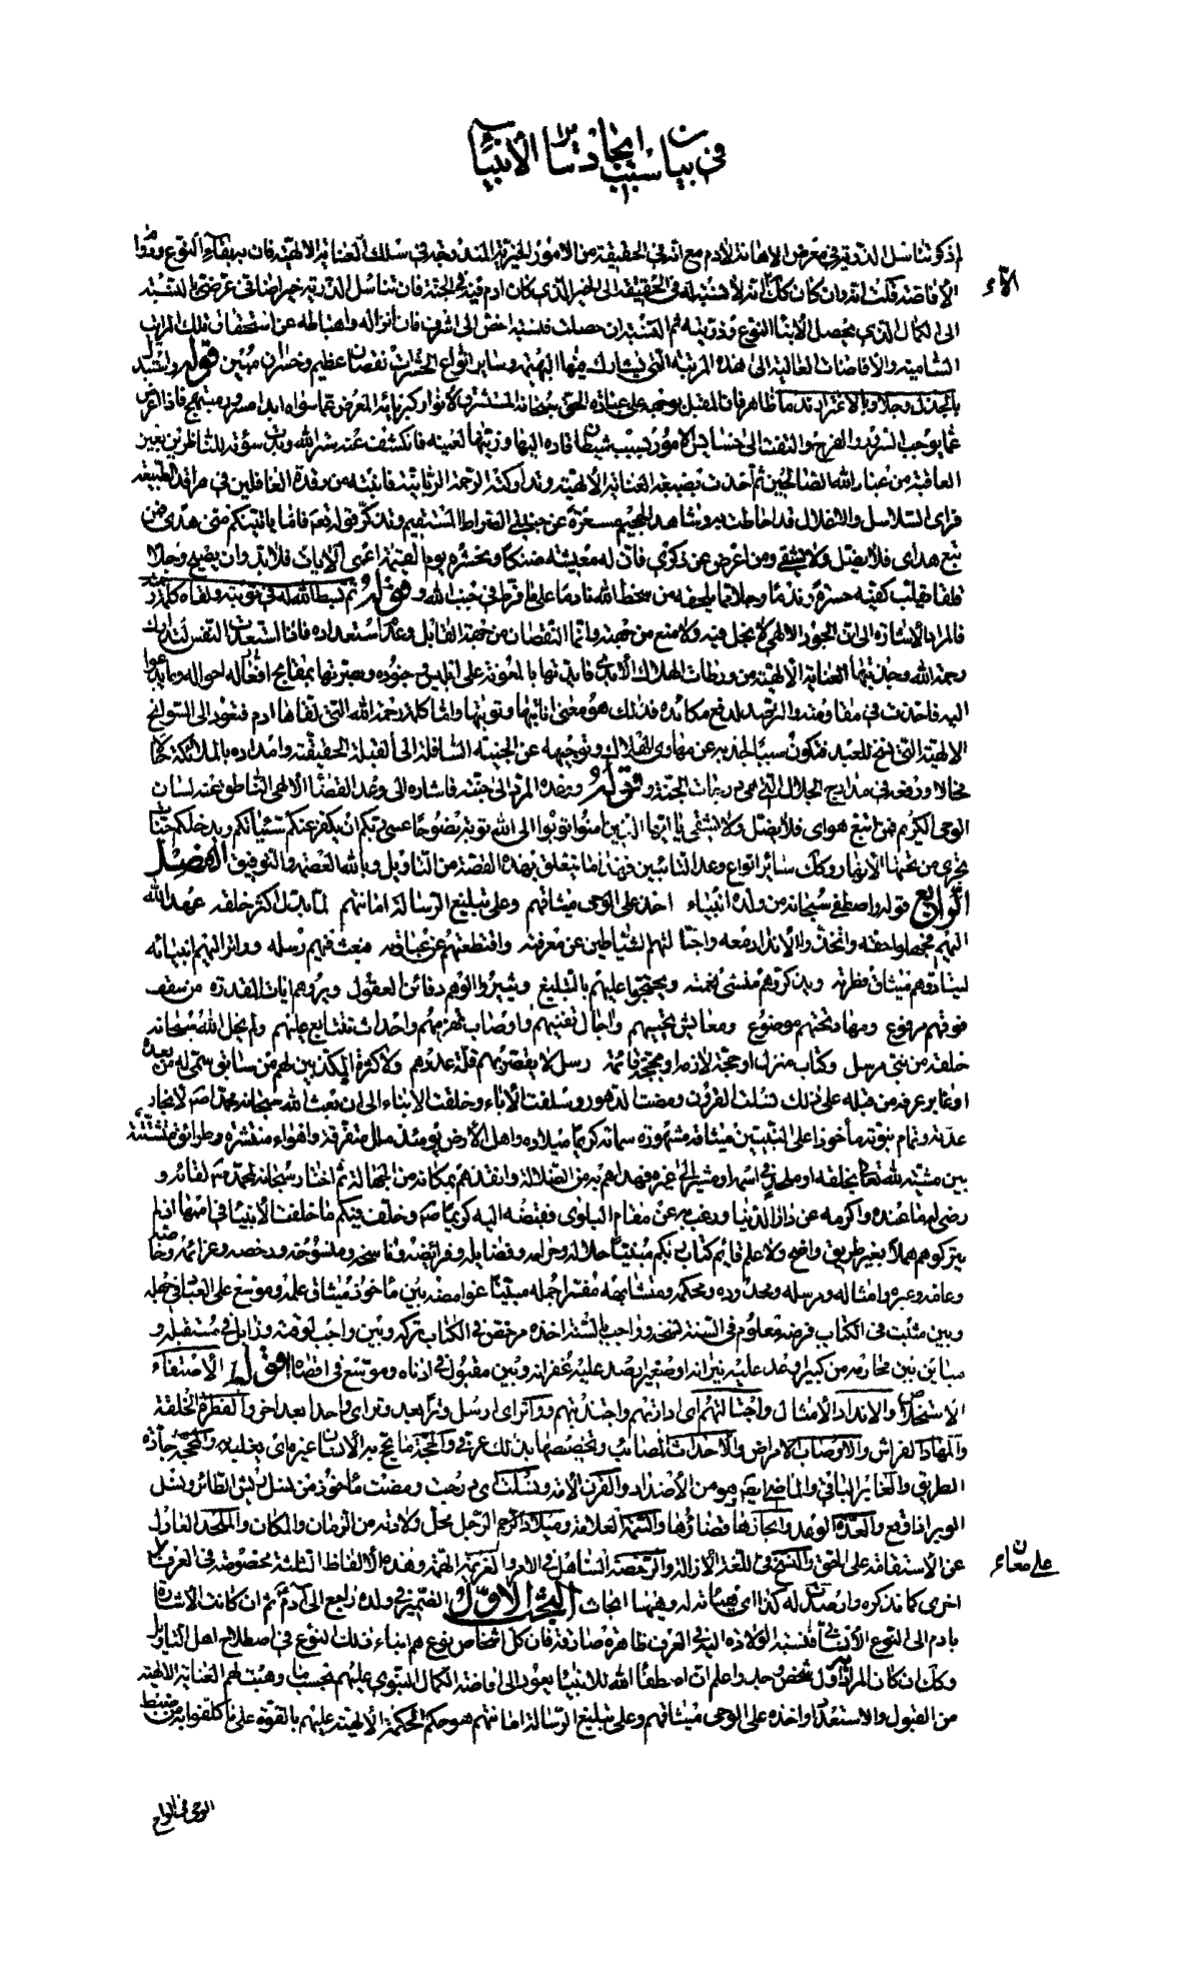 في بيان سبب ايجاد سائر الأنبياء
اذ ذكر تناسل الذرية في معرض الاهانة لآدم مع انه في الحقيقة من الامور الخيرية المندرجة في سلك العناية الالهية فان به بقاء النوع ودوام
الافاضة قلت انه وان كان كك الا انه لا نسبة له في الحقيقة الى الخير الذي كان ادم فيه في الجنة فان تناسل الذرية خير اضافي عرضي بالنسبة
الى الكمال الذي يحصل لابناء النوع وذريته ثم النسبة ان حصلت فنسبة اخس الى اشرف فان انزاله واهباطه عن استحقاق تلك المراتب
السامية والافاضات العالية الى هذه المرتبة التي يشارك فيها البهيمة وساير انواع الحشرات نقصان عظيم وخسران مبين قوله واستبدل
بالجذل وجلا وبالاغترار ندما ظاهر فان المقبل بوجهه على عبادة الحق سبحانه المستشرق لانوار كبريائه المعرض عما سواه ابدا مسرور مبتهج فاذا اعرض
عما يوجب السرور والفرح والتفت الى خسايس الامور بسبب شيطان قاده اليها وزينها لعينه فانكشف عنه ستر الله وبدت سوءته للناظرين بعين
العاقبة من عباد الله الصالحين ثم اخذت بضبعه العناية الالهية وتداركته الرحمة الربانية فانتبه من رقدة الغافلين في مراقد الطبيعة
فرأى السلاسل والاغلال قد احاطت به وشاهد الجحيم مسعرة عن جنبتي الصراط المستقيم وتذكر قوله نعم فاما ياتينكم مني هدى فمن
تبع هداي فلا يضل ولا يشقى ومن اعرض عن ذكري فان له معيشة ضنكا ونحشره يوم القيمة اعمى الايات فلا بد وان يصبح وجلا
فلقا يقلب كفيه حسرة وندما وجلا مما يلحقه من سخط الله نادما على ما فرط في جنب الله وقوله ثم بسط الله له في توبته ولقاه كلمة رحمته
فالمراد الاشارة الى ان الجود الالهي لا بخل فيه ولا منع من جهته وانما النقصان من جهة القابل وعدم استعداده فاذا استعدت النفس لتدارك
رحمة الله وجذبتها العناية الالهية من ورطات الهلاك الابدي فايدتها بالمعونة على ابليس وجنوده وبصرتها بمقابح افعاله احواله وما يدعوا
اليه فاخذت في مقاومته والترصد لدفع مكائده فذلك هو معنى انابتها وتوبتها واما كلمة رحمة الله التي لقاها ادم فتعود الى السوانح
الالهية التي تسنح للعبد فتكون سببا لجذبه عن مهاوي الهلاك وتوجيهه عن الجنبة السافلة الى القبلة الحقيقة وامداده بالملائكة كما
حالا ورفعه في مدارج الجلال التي هي درجات الجنة وقوله ووعده المرد الى جنته فاشارة الى وعد القضاء الالهي الناطق عنه لسان
الوحي الكريم فمن اتبع هداي فلا يضل ولا يشقى يا ايها الذين امنوا توبوا الى الله توبة نصوحا عسى ربكم ان يكفر عنكم سيئاتكم ويدخلكم جنات
تجري من تحتها الانهار وكك ساير انواع وعد التائبين فهذا ما يتعلق بهذه القصة من التاويل وبالله العصمة والتوفيق الفصل
الرابع قوله واصطفى سبحانه من ولده انبياء اخذ على الوحي ميثاقهم وعلى تبليغ الرسالة امانتهم لما بدل اكثر خلقه عهد الله
اليهم فجهلوا حقه واتخذوا الانداد معه واجتالتهم الشياطين عن معرفته واقتطعتهم عن عبادته فبعث فيهم رسله وواتر اليهم انبيائه
ليستادوهم ميثاق فطرته ويذكروهم منسي نعمته ويحتجوا عليهم بالتبليغ ويثيروا لهم دفائن العقول ويروهم ايات المقدرة من سقف
فوقهم مرفوع ومهاد تحتهم موضوع ومعايش تحييهم واجال تفنيهم واوصاب تهرمهم واحداث تتتابع عليهم ولم يخل الله سبحانه
خلقه من نبي مرسل وكتاب منزل او حجة لازمة او محجة قائمة رسل لا يقصر بهم قلة عددهم ولا كثرة المكذبين لهم من سابق سمي له من بعده
او غابر عرفه من قبله على ذلك نسلت القرون ومضت الدهور وسلفت الاباء وخلفت الابناء الى ان بعث الله سبحانه محمدا ص لانجاز
عدته وتمام نبوته مأخوذا على النبيين ميثاقه مشهورة سماته كريما ميلاده واهل الارض يومئذ ملل متفرقة واهواء منتشرة وطرائق متشتتة
بين مشبه لله تعالى بخلقه او ملحد في اسمه او مشير الى غيره فهداهم به من الضلالة وانقذهم بمكانه من الجهالة ثم اختار سبحانه لمحمد ص لقائه و
رضي له ما عنده واكرمه عن دار الدنيا ورغب به عن مقام البلوى فقبضه اليه كريما ص وخلف فيكم ما خلفت الانبياء في اممها اذ لم
يتركوهم هملا بغير طريق واضح ولا علم قايم كتاب ربكم مبينا حلاله وحرامه وفضايله وفرائضه وناسخه ومنسوخه ورخصه وعزائمه وخاصه
وعامه وعبره وامثاله ومرسله ومحدوده ومحكمه ومتشابهه مفسرا جمله مبينا غوامضه بين مأخوذ ميثاق علمه وموسع على العباد في جهله
وبين مثبت في الكتاب فرضه ومعلوم في السنة نسخه وواجب بالسنة اخذه مرخص في الكتاب تركه وبين واجب لوقته وزايل في مستقبله و
مباين بين محارمه من كبير اوعد عليه نيرانه او صغير ارصد عليه غفرانه وبين مقبول في ادناه وموسع في اقصاه اقول الاصطفاء
الاستخلاص والانداد الامثال واجتالتهم اي ادارتهم واجتذبتهم وواتر اي ارسل وترا بعد وتر اي واحدا بعد اخر والفطرة الخلقة
والمهاد الفراش والاوصاب الامراض والاحداث المصائب وتخصيصها بذلك عرفي والحجة ما يحج به الانسان غيره اي يغلبه والمحجة جادة
الطريق والغابر الباقي والماضي ايضا فهو من الاضداد والقرن الامة ونسلت اي درجت ومضت مأخوذ من نسل ريش الطائر ونسل
الوبر اذا وقع والعدة الوعد وانجازها قضاؤها والسمة العلامة وميلاد الرجل محل ولادته من الزمان والمكان والملحد العادل
عن الاستقامة على الحق والنسخ في اللغة الازالة والرخصة التساهل في الامر والعزيمة الهمة وهذه الالفاظ الثلثة مخصوصة في العرف بمعان
اخرى كما نذكره وارصدت له كذا اي هيأته له وفيها ابحاث البحث الاول الضمير في ولده راجع الى آدم ثم ان كانت الاشارة
بادم الى النوع الانساني فنسبة الولادة اليه في العرف ظاهرة صادقة فان كل اشخاص نوع هم ابناء ذلك النوع في اصطلاح اهل التاويل
وكك ان كان المراد اول شخص وجد واعلم ان اصطفاء الله للانبياء يعود الى افاضة الكمال النبوي عليهم بحسب ما وهبت لهم العناية الالهية
من القبول والاستعداد واخذه على الوحي ميثاقهم وعلى تبليغ الرسالة امانتهم هو حكم الحكمة الالهية عليهم بالقوة على ما كلفوا به من ضبط
الوحي في الواح